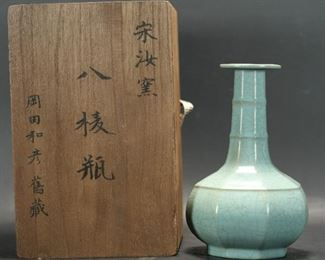 宋汝窯
八棱瓶
岡田和彦舊藏